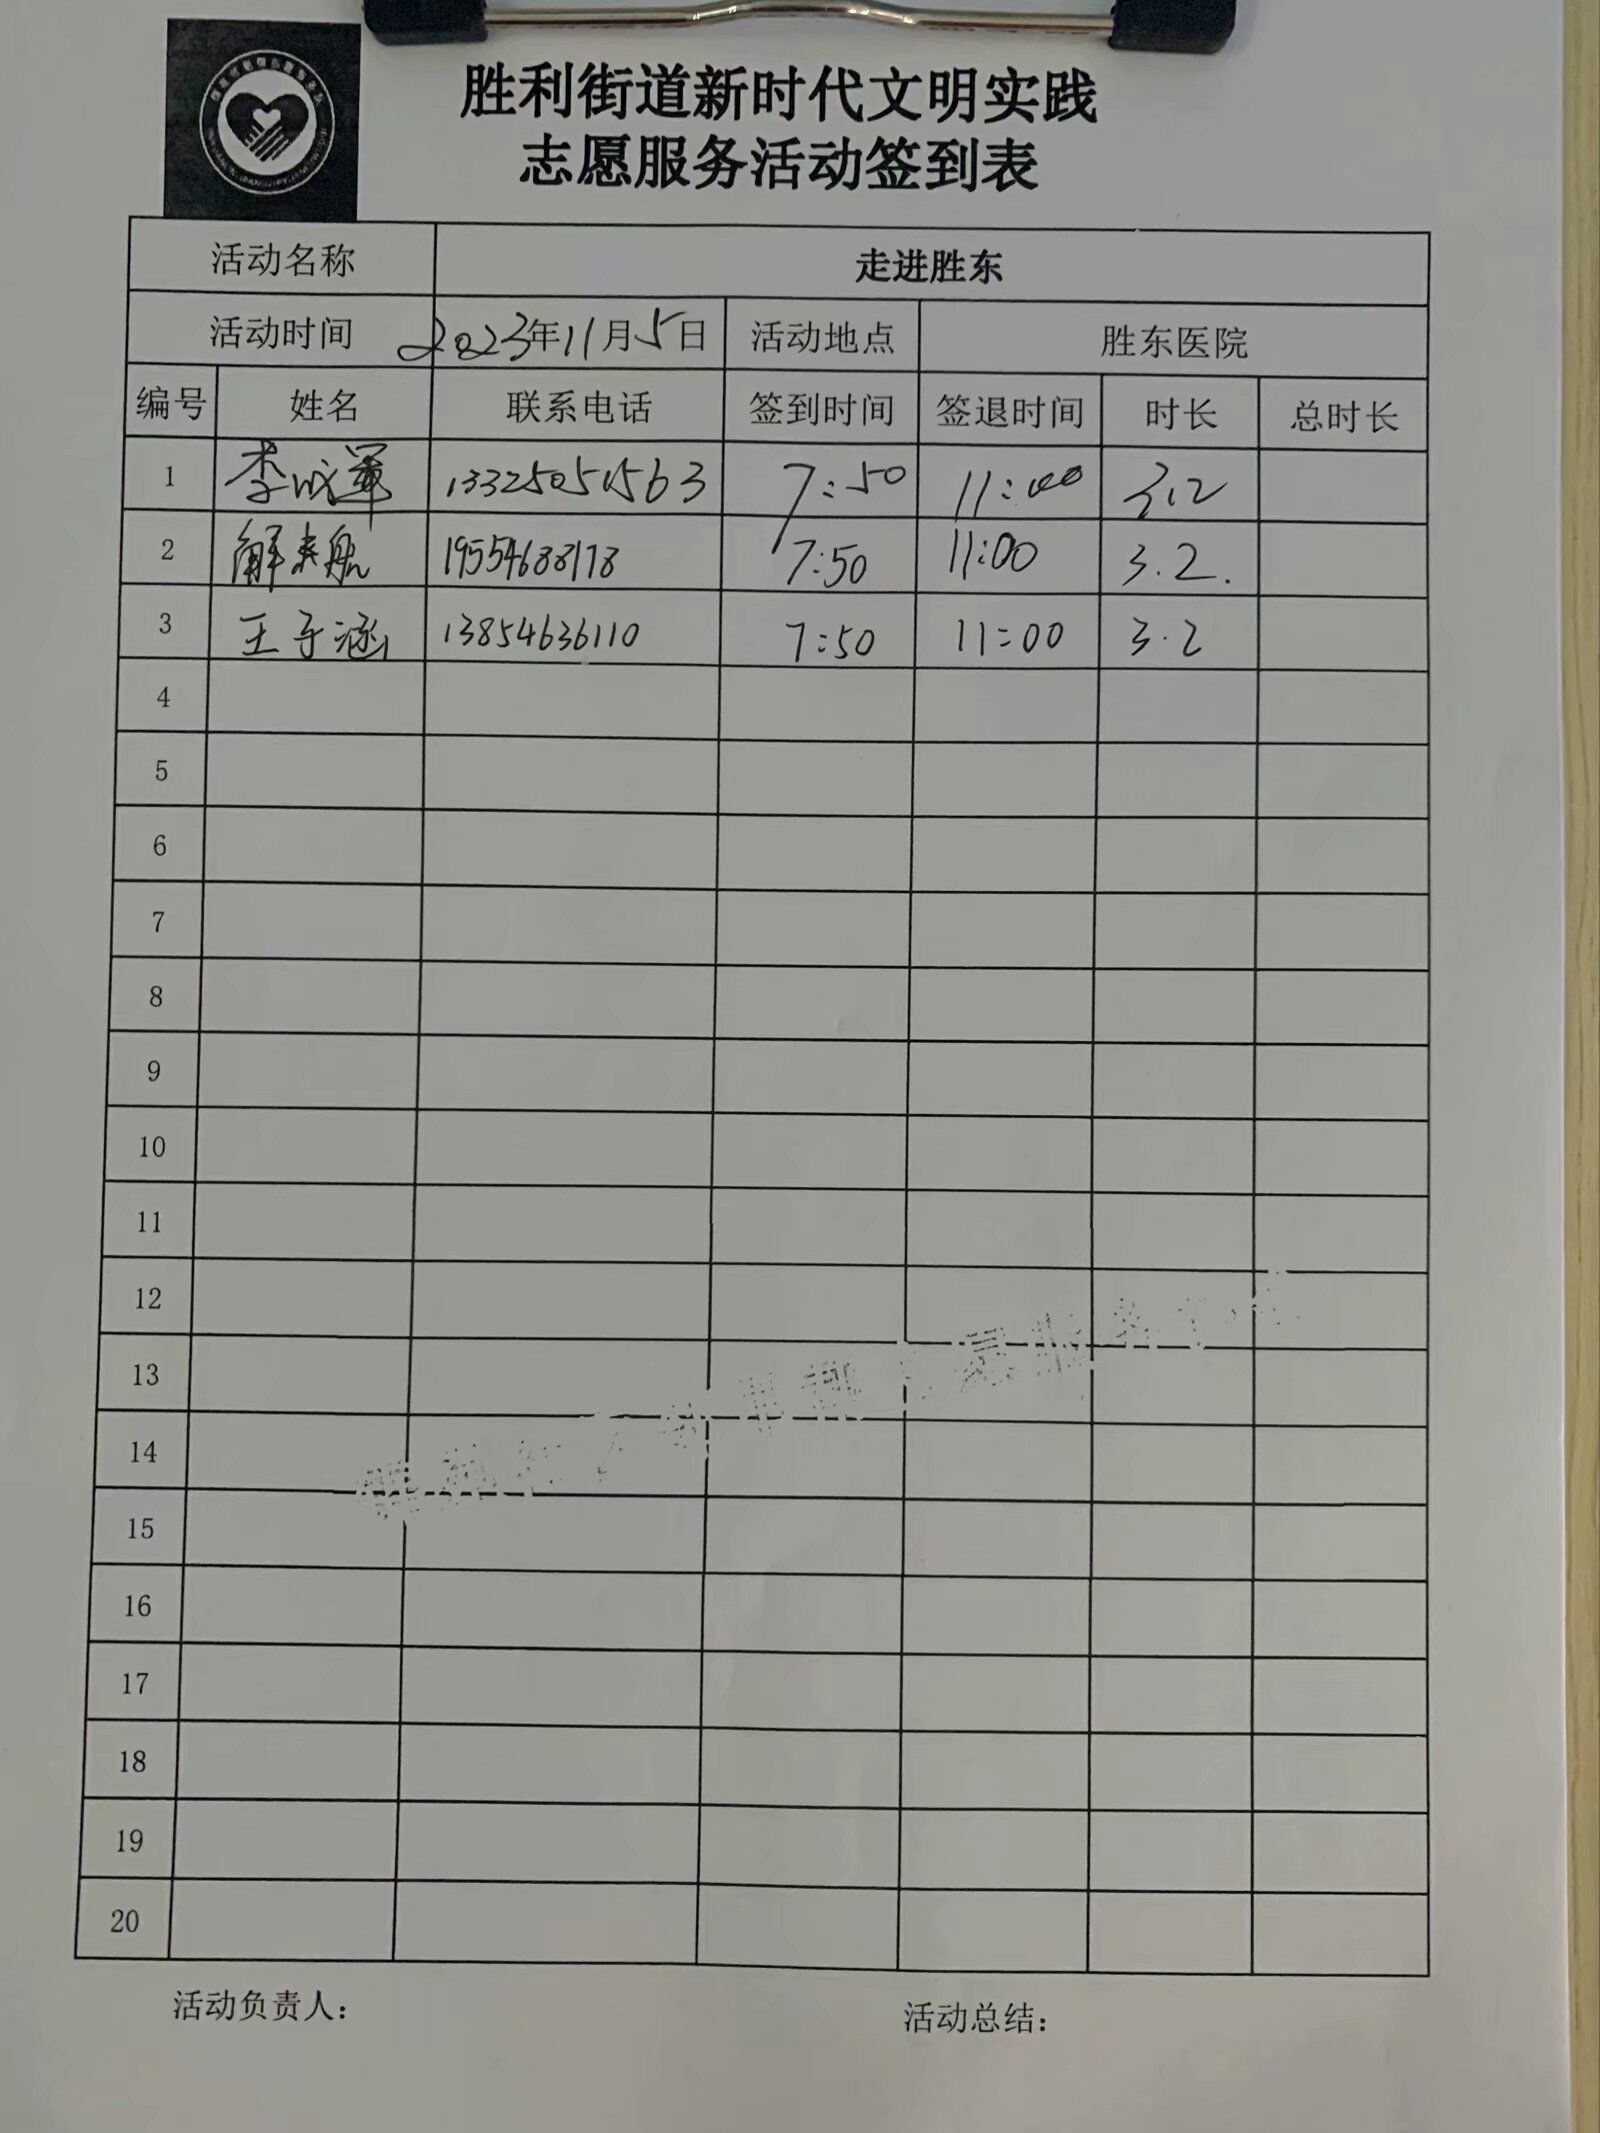 胜利街道新时代文明实践
志愿服务活动签到表
活动名称 走进胜东
活动时间 2023年11月5日 活动地点 胜东医院
编号 姓名 联系电话 签到时间 签退时间 时长 总时长
1 李成军 13325051563 7:50 11:00 3.2
2 解 航 19554688178 7:50 11:00 3.2.
3 王子涵 13854636110 7:50 11:00 3.2
4
5
6
7
8
9
10
11
12
13
14
15
16
17
18
19
20
活动负责人： 活动总结：